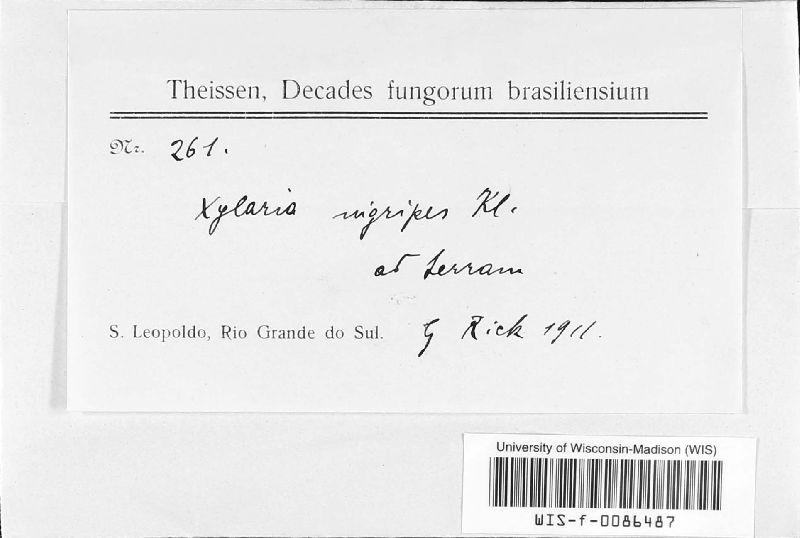 Theissen, Decades fungorum brasiliensium
Nr. 261.
Xylaria nigripes Kl.
ad terram
S. Leopoldo, Rio Grande do Sul. G Rick 1911.
University of Wisconsin-Madison (WIS)
WIS-f-0086487